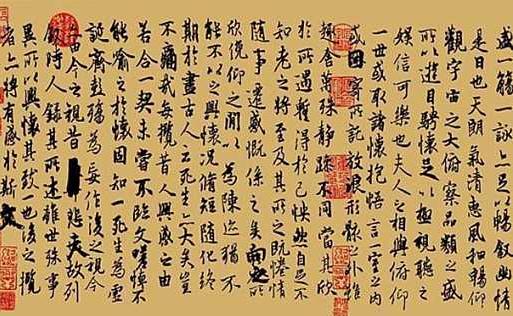 盛一觴一詠亦足以暢叙幽情
是日也天朗氣清惠風和暢仰
觀宇宙之大俯察品類之盛
所以遊目騁懷足以極視聽之
娛信可樂也夫人之相與俯仰
一世或取諸懷抱悟言一室之內
或因寄所託放浪形骸之外雖
趣舍萬殊靜躁不同當其欣
於所遇暫得於己怏然自足不
知老之將至及其所之既惓情
隨事遷感慨係之矣向之所
欣俛仰之閒以為陳迹猶不
能不以之興懷況脩短隨化終
期於盡古人云死生亦大矣豈
不痛哉每攬昔人興感之由
若合一契未嘗不臨文嗟悼不
能喻之於懷固知一死生為虛
誕齊彭殤為妄作後之視今
亦由今之視昔悲夫故列
叙時人錄其所述雖世殊事
異所以興懷其致一也後之攬
者亦將有感於斯文